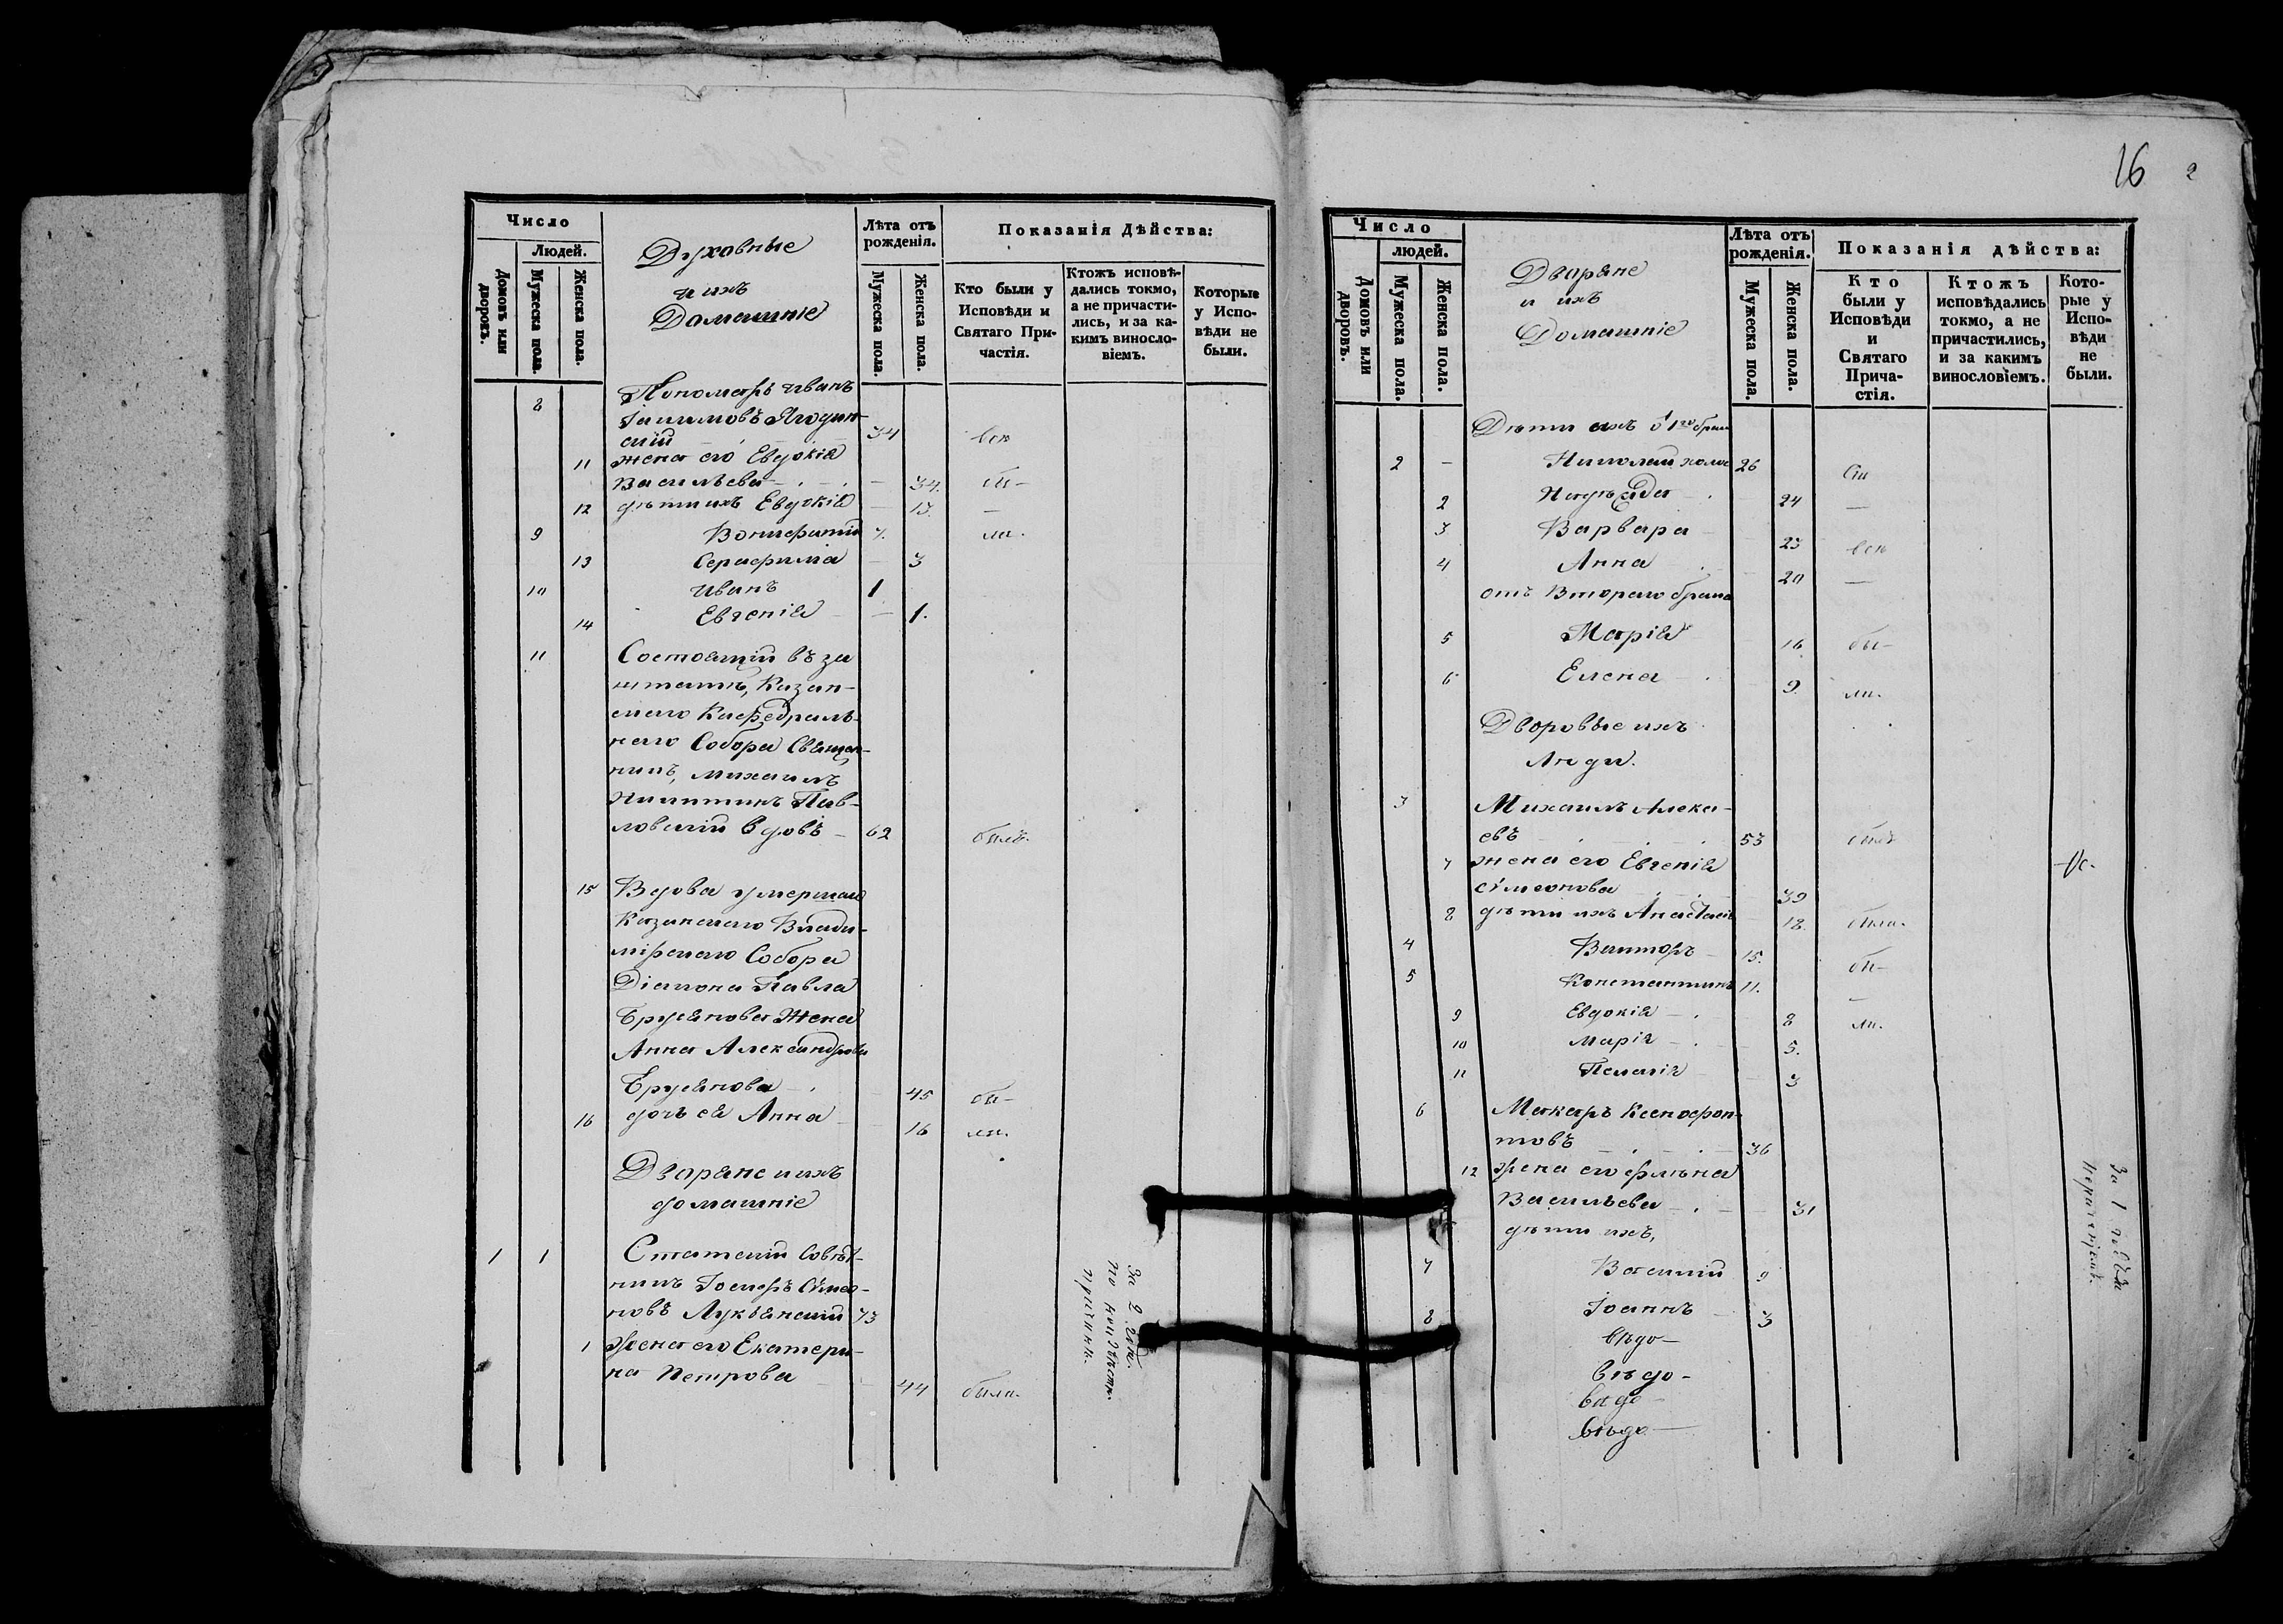 16
Число
Людей.
Домовъ или дворовъ.
Мужеска пола.
Женска пола.
Духовные
и ихъ
Домашніе
Лѣта отъ
рожденія.
Мужеска пола.
Женска пола.
Показанія Дѣйства:
Кто были у
Исповѣди и
Святаго При-
частія.
Ктожъ исповѣ-
дались токмо,
а не причасти-
лись, и за ка-
кимъ винословіемъ.
Которые
у Испо-
вѣди не
были.
8 Пономарь Иванъ
34
11 жена его Евдокія
Васильева 34.
12 дѣти ихъ Евдокія 13.
9 Вонифатій 7.
13 Серафима 3
10 Иванъ 1
14 Евгенія 1.
11 Состоящій въ за
штатѣ, Казан-
скаго Кафедраль-
наго Собора Священ-
никъ, Михаилъ
Никитинъ Пав-
ловскій вдовъ 62 былъ.
15 Вдова умершаго
Казанскаго Влади-
мірскаго Собора
Діакона Павла
Брусянова Жена
Анна Александрова
Брусянова 45 бы-
16 дочь ея Анна 16 ли.
Дворяне и ихъ
домашніе
1 1 Статскій Совѣт-
никъ Іосифъ Сѵмео-
новъ Лукьянскій 73
1 Жена его Екатери-
на Петрова 44 была.
Число
людей.
Домовъ или дворовъ.
Мужеска пола.
Женска пола.
Дворяне
и ихъ
Домашніе
Лѣта отъ
рожденія.
Мужеска пола.
Женска пола.
Показанія дѣйства:
Кто
были у
Исповѣди
и
Святаго
Прича-
стія.
Ктожъ
исповѣдались
токмо, а не
причастились,
и за какимъ
винословіемъ.
Кото-
рые у
Испо-
вѣди
не
были.
Дѣти ихъ
2 Николай 26
2 Надежда 24
3 Варвара 23 всѣ
4 Анна 20
отъ Втораго брака
5 Марія 16 бы-
6 Елена 9 ли.
Дворовые ихъ
Люди.
3 Михаилъ Алекс-
евъ 53 былъ
7 жена его Евгенія
Сѵмеонова 39
8 дѣти ихъ Анастасія 18. была.
4 Викторъ 15. бы-
5 Константинъ 11.
9 Евдокія 8 ли.
10 Марія 5.
11 Пелагія 3
6 Макаръ Ксенофон-
товъ 36
12 жена его
Васильева 31
дѣти ихъ,
7 Василій 9
8 Іоаннъ 3